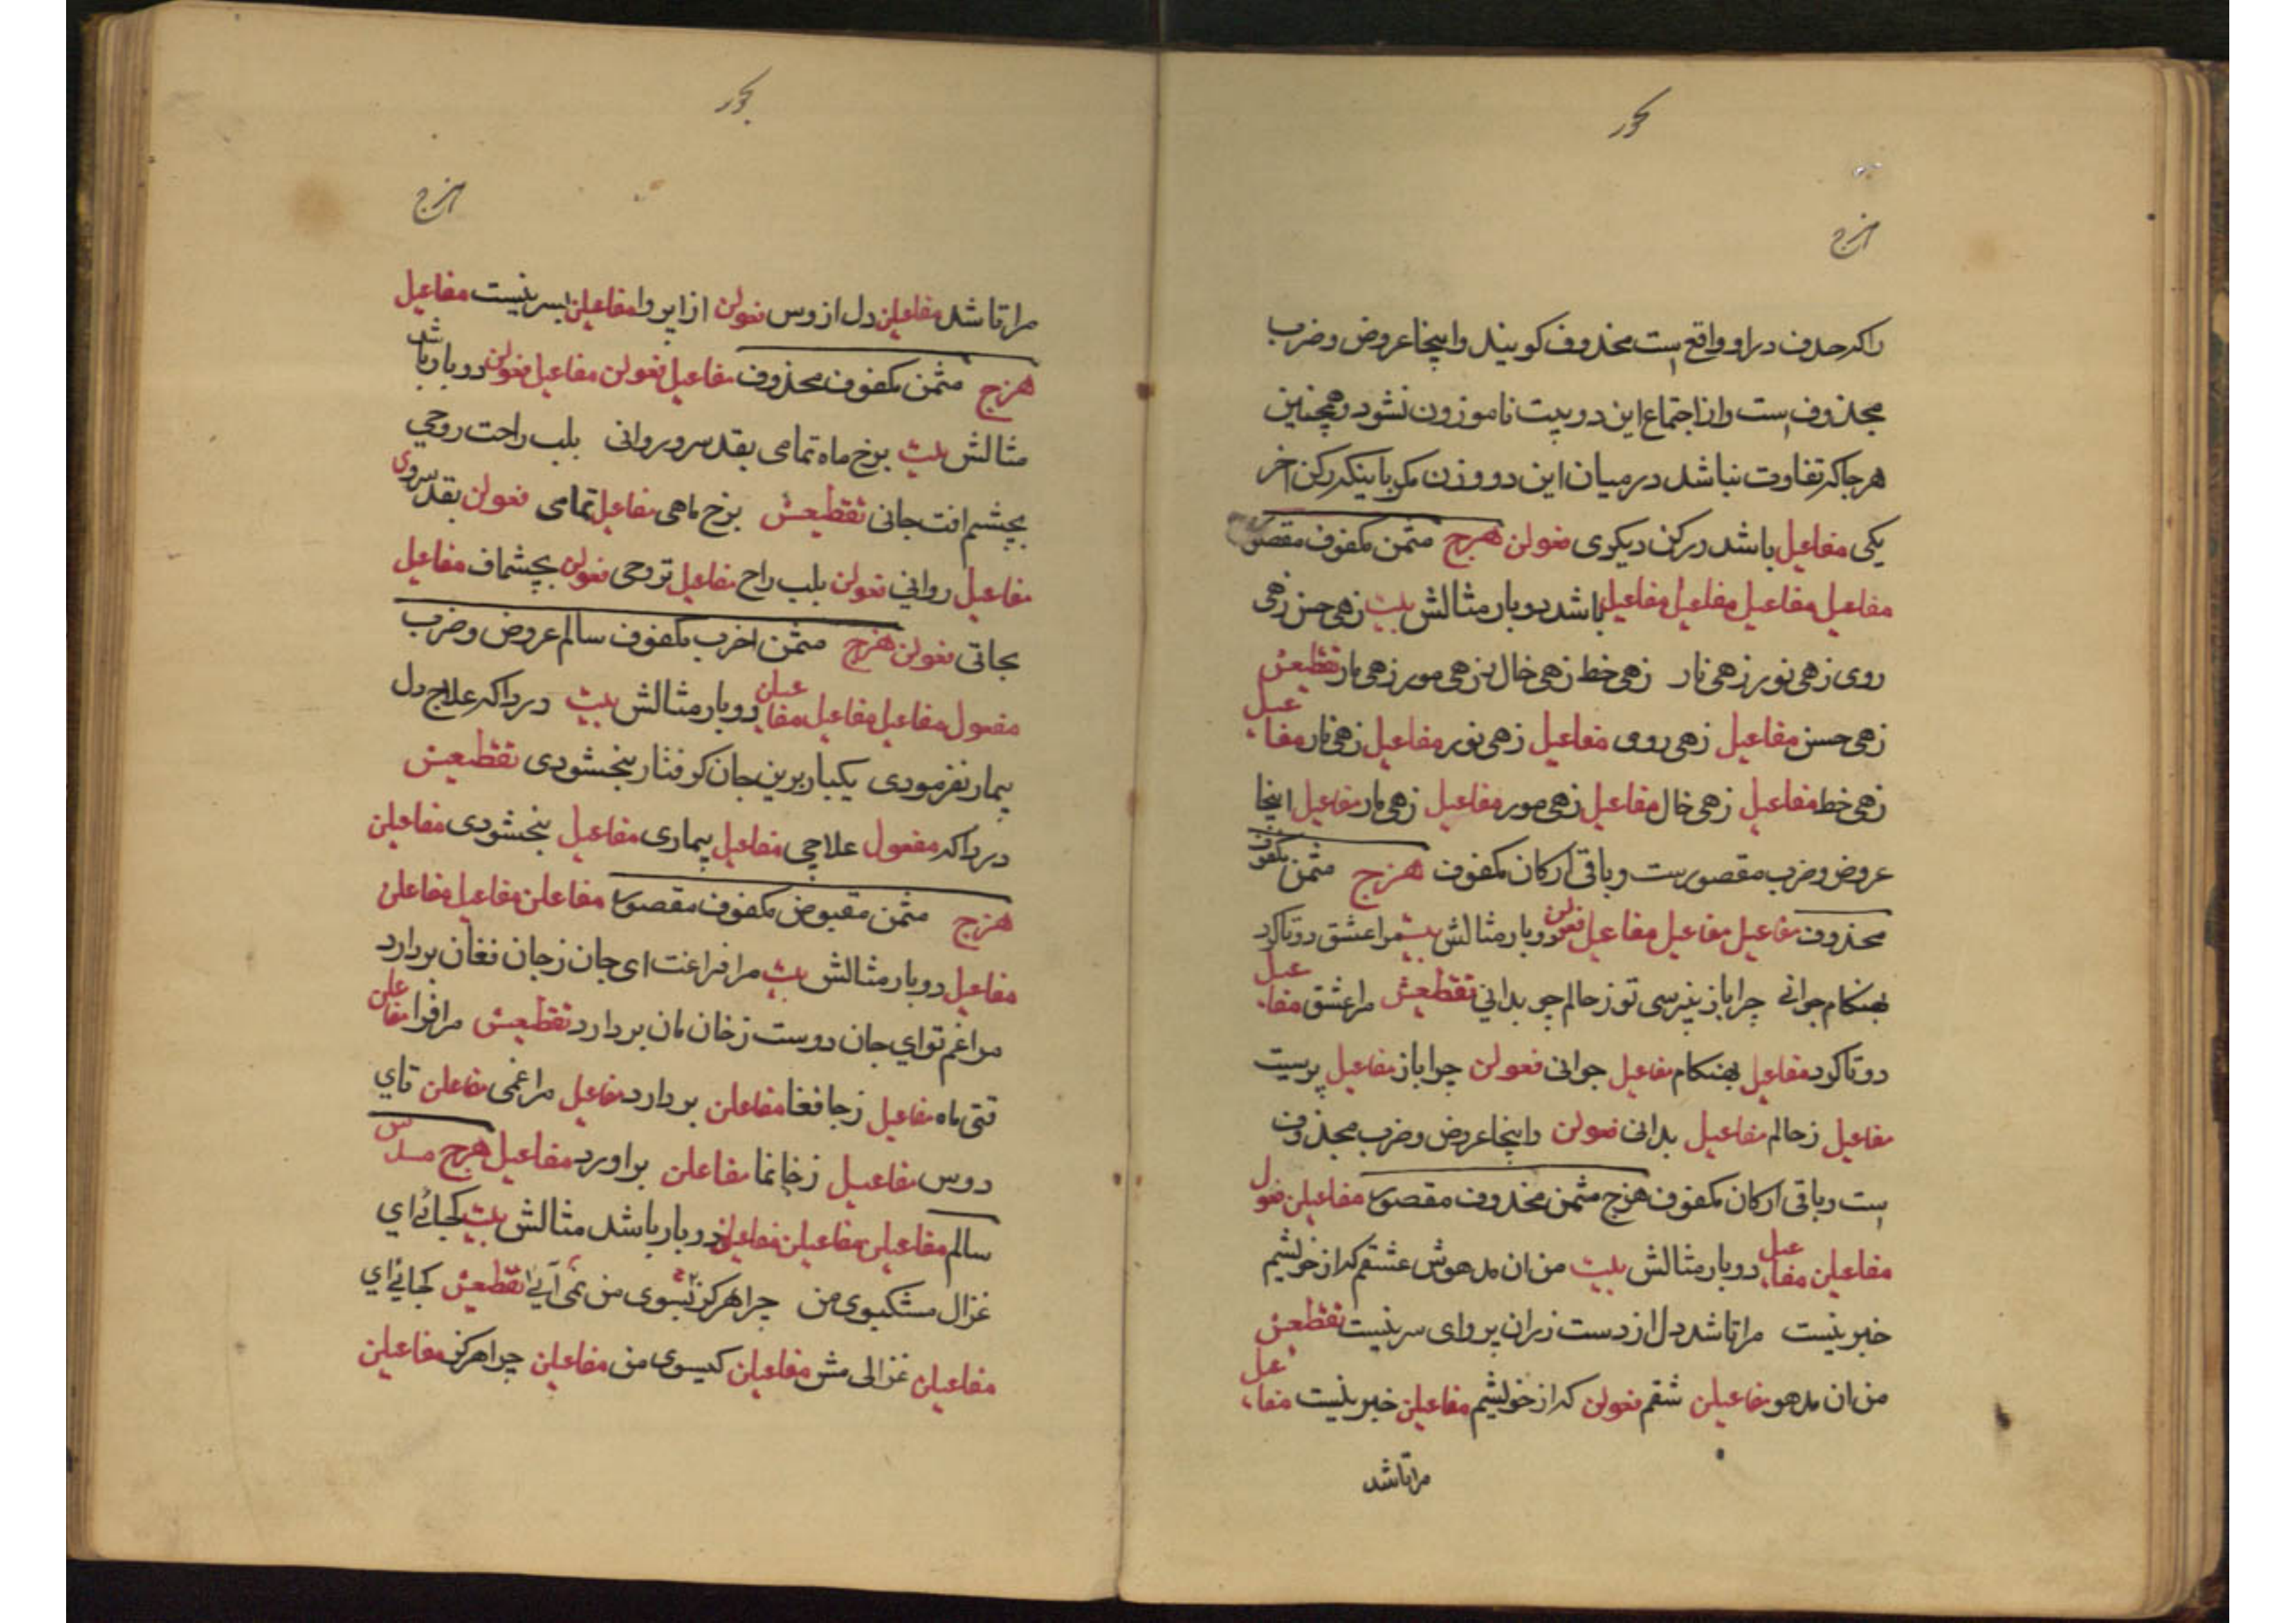 بحور
هزج
را که حذف در او واقع است محذوف کویند و اینجا عروض و ضرب
محذوف است و از اجتماع این دو بیت ناموزون نشود و همچنین
هرجا که تفاوت نباشد در میان این دو وزن مکر باینکه رکن اخر
یکی مفاعیل باشد در رکن دیکری فعولن هزج مثمن مکفوف مقصور
مفاعیل مفاعیل مفاعیل مفاعیل باشد دوبار مثالش بیت زهی حسن زهی
روی زهی نور زهی نار زهی خط زهی خال زهی مور زهی مار تقطیعش
زهی حسن مفاعیل زهی روی مفاعیل زهی نور مفاعیل زهی نار مفاعیل
زهی خط مفاعیل زهی خال مفاعیل زهی مور مفاعیل زهی مار مفاعیل اینجا
عروض و ضرب مقصورست و باقی ارکان مکفوف هزج مثمن مکفوف
محذوف مفاعیل مفاعیل مفاعیل فعولن دوبار مثالش بیت مرا عشق دوتا کرد
بهنکام جوانی چرا باز نپرسی تو ز حالم چو بدانی تقطیعش مرا عشق مفاعیل
دوتا کرد مفاعیل بهنکام مفاعیل جوانی فعولن چرا باز مفاعیل پرسیت
مفاعیل زحالم مفاعیل بدانی فعولن و اینجا عروض و ضرب محذوف
است و باقی ارکان مکفوف هزج مثمن محذوف مقصور مفاعیلن فعول
مفاعیلن مفاعیل دوبار مثالش بیت من ان مدهوش عشقم که از خویشم
خبر نیست مرا تا شد دل از دست زان پروای سر نیست تقطیعش
من ان مدهو مفاعیلن شقم فعولن که از خویشم مفاعیلن خبر نیست مفاعیل
مرا تا شد
بحور
هزج
مرا تا شد مفاعیلن دل از وس فعولن از اپروا مفاعیلن بسر نیست مفاعیل
هزج مثمن مکفوف محذوف مفاعیل فعولن مفاعیل فعولن دوبار باشد
مثالش بیت برخ ماه تمامی بقد سرو روانی بلب راحت روحی
بچشم افت جانی تقطیعش برخ ماهی مفاعیل تمامی فعولن بقد سروی
مفاعیل روانی فعولن بلب راح مفاعیل تروحی فعولن بچشماف مفاعیل
تجانی فعولن هزج مثمن اخرب مکفوف سالم عروض و ضرب
مفعول مفاعیل مفاعیل مفاعیلن دوبار مثالش بیت دردا که علاج دل
بیمار نفرمودی یکبار برین جان کرفتار نبخشودی تقطیعش
دردا که مفعول علاجی مفاعیل بیماری مفاعیل نبخشودی مفاعیلن
هزج مثمن مقبوض مکفوف مقصور مفاعلن مفاعیل مفاعلن
مفاعیل دوبار مثالش بیت مرا فراغت ای جان ز جان فغان بر دارد
مرا غم تو ای جان دوست ز خان مان بر دارد تقطیعش مرا فرا مفاعلن
قتی ماه مفاعیل زجا فغا مفاعلن بر دارد مفاعیل مرا غمی مفاعلن تای
دوس مفاعیل زخانما مفاعلن براورد مفاعیل هزج مسدس
سالم مفاعیلن مفاعیلن مفاعیلن دوبار باشد مثالش بیت کجائی ای
غزال مشکبوی من چرا هرکز بسوی من نمی آیی تقطیعش کجائی ای
مفاعیلن غزالی مش مفاعیلن کبوی من مفاعیلن چرا هرکز مفاعیلن